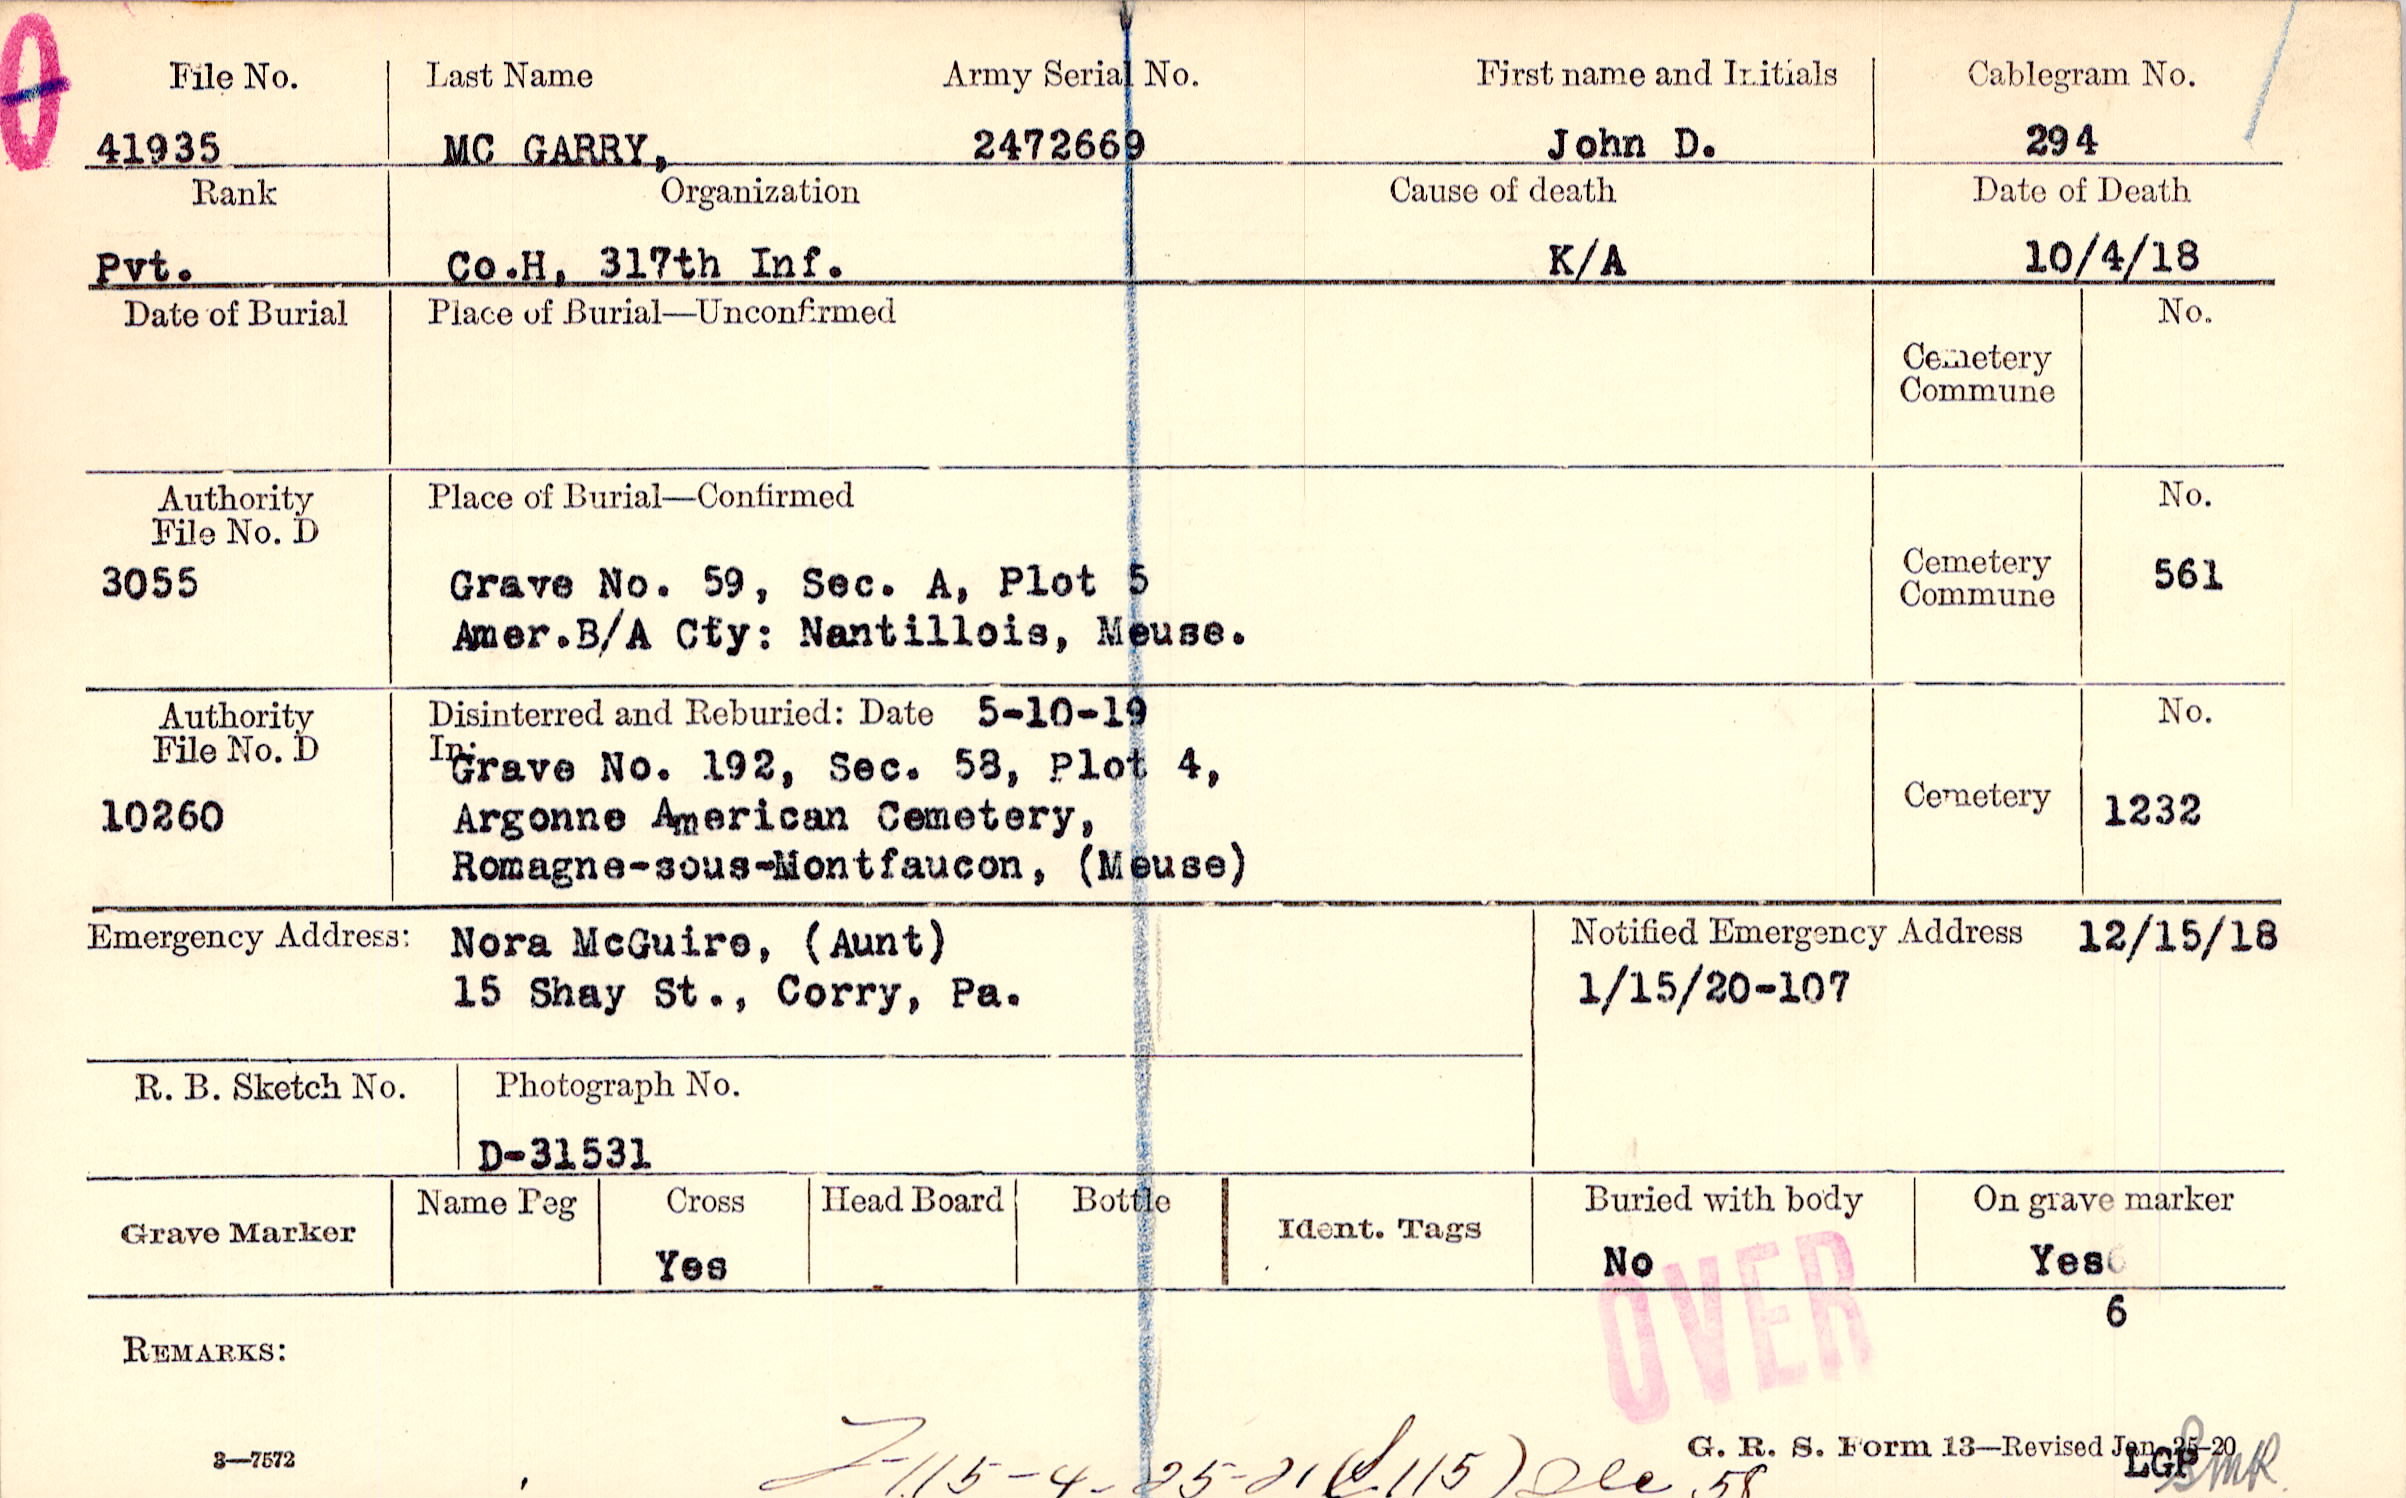 File No. Last Name Army Serial No. First name and Initials Cablegram No.
41935 MC GARRY, 2472669 John D. 294
Rank Organization Cause of death Date of Death
Pvt. Co.H, 317th Inf. K/A 10/4/18
Date of Burial Place of Burial—Unconfirmed No.
Cemetery
Commune
Authority Place of Burial—Confirmed No.
File No. D
3055 Grave No. 59, Sec. A, Plot 5 Cemetery Commune 561
Amer.B/A Cty: Nantillois, Meuse.
Authority Disinterred and Reburied: Date 5-10-19 No.
File No. D In:
Grave No. 192, Sec. 58, Plot 4,
10260 Argonne American Cemetery, Cemetery 1232
Romagne-sous-Montfaucon, (Meuse)
Emergency Address: Nora McGuire, (Aunt) Notified Emergency Address 12/15/18
15 Shay St., Corry, Pa. 1/15/20-107
R. B. Sketch No. Photograph No.
D-31531
Name Peg Cross Head Board Bottle Buried with body On grave marker
Grave Marker Ident. Tags
Yes No Yes
6
OVER
REMARKS:
3—7572 G. R. S. Form 13—Revised Jan. 25-20
LGP
115-4-25-21 (L115) 58